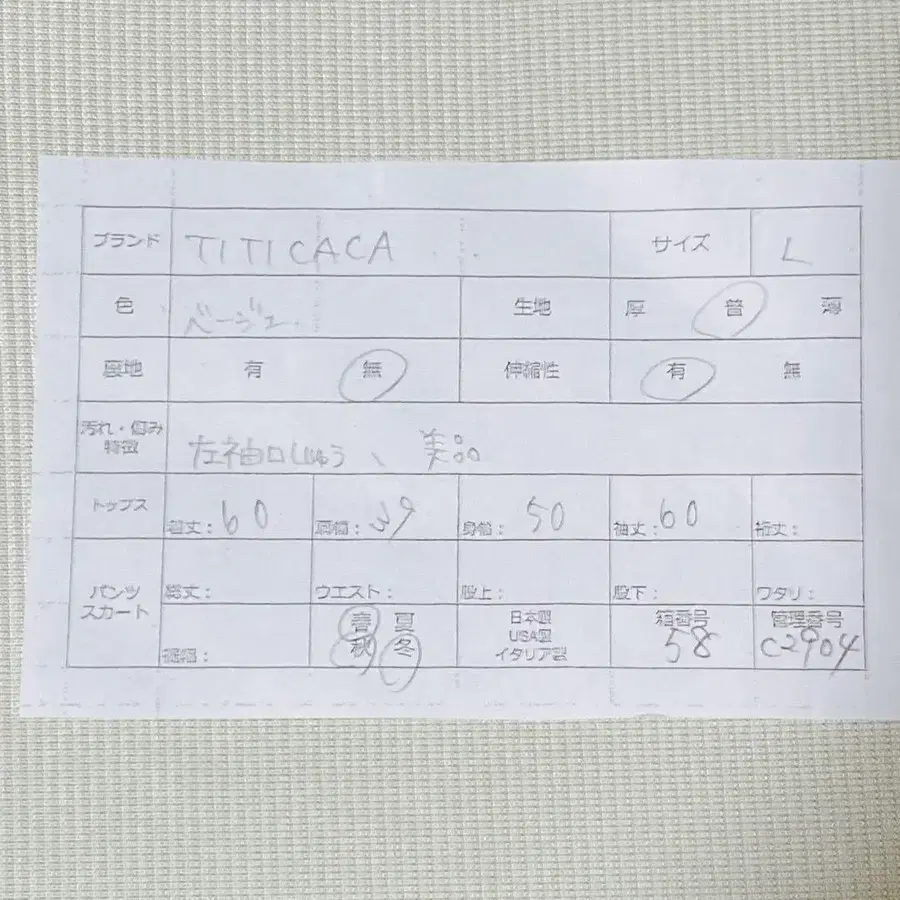 ブランド TITICACA サイズ L
色 ベージュ 生地 厚 普 薄
裏地 有 無 伸縮性 有 無
汚れ・傷み
特徴
左袖口しゅう、美品
トップス 着丈:60 肩幅:39 身幅:50 袖丈:60 裄丈:
パンツ
スカート
総丈: ウエスト: 股上: 股下: ワタリ:
裾幅:
春 夏
秋 冬
日本製
USA製
イタリア製
箱番号
58
管理番号
C2904